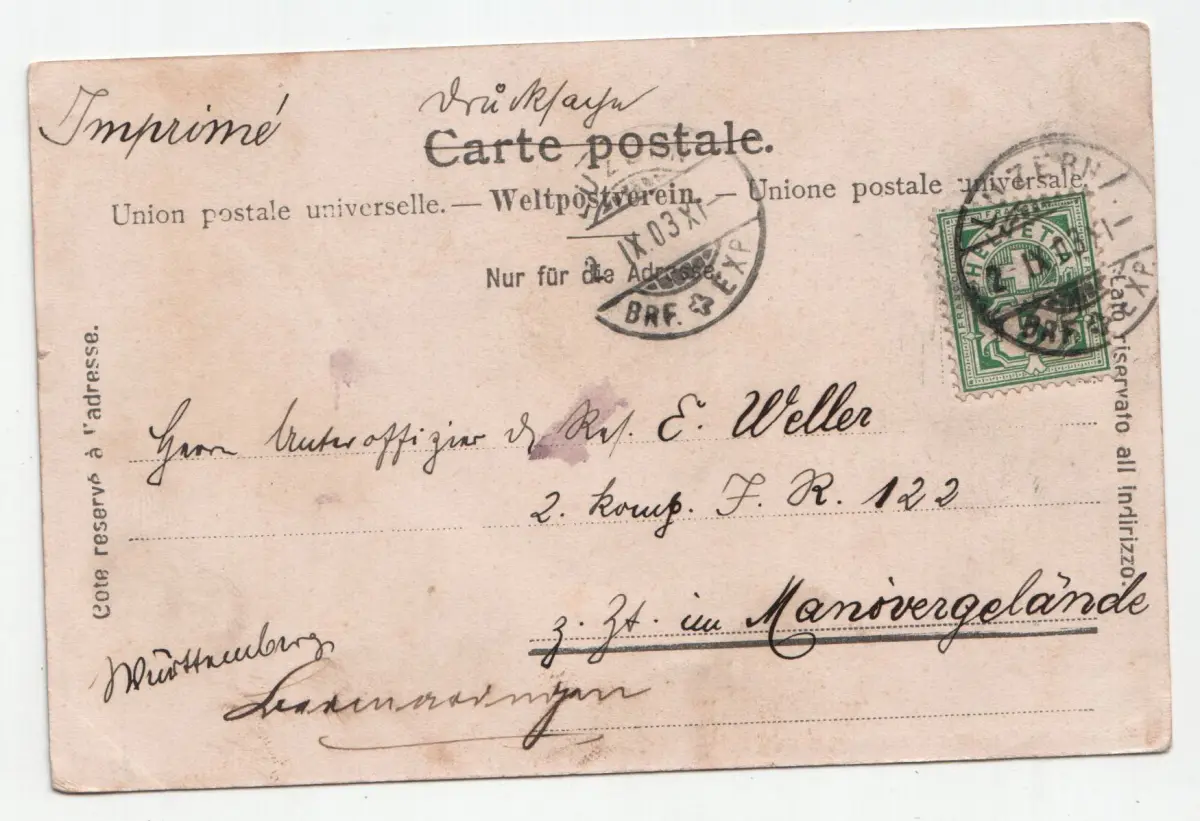 Imprimé
Drucksache
Carte postale.
Union postale universelle. — Weltpostverein. — Unione postale universale.
Nur für die Adresse.
LUZERN
2. IX. 03. XI–
BRF. EXP.
LUZERN
2. IX. 03. XI–
BRF. EXP.
HELVETIA
FRANCO
Côté reservé à l'adresse.
Lato riservato all indirizzo.
Herrn Unteroffizier d. Res. E. Weller
2. Komp. J. R. 122
z. Zt. im Manövergelände
Württemberg
Bermaringen